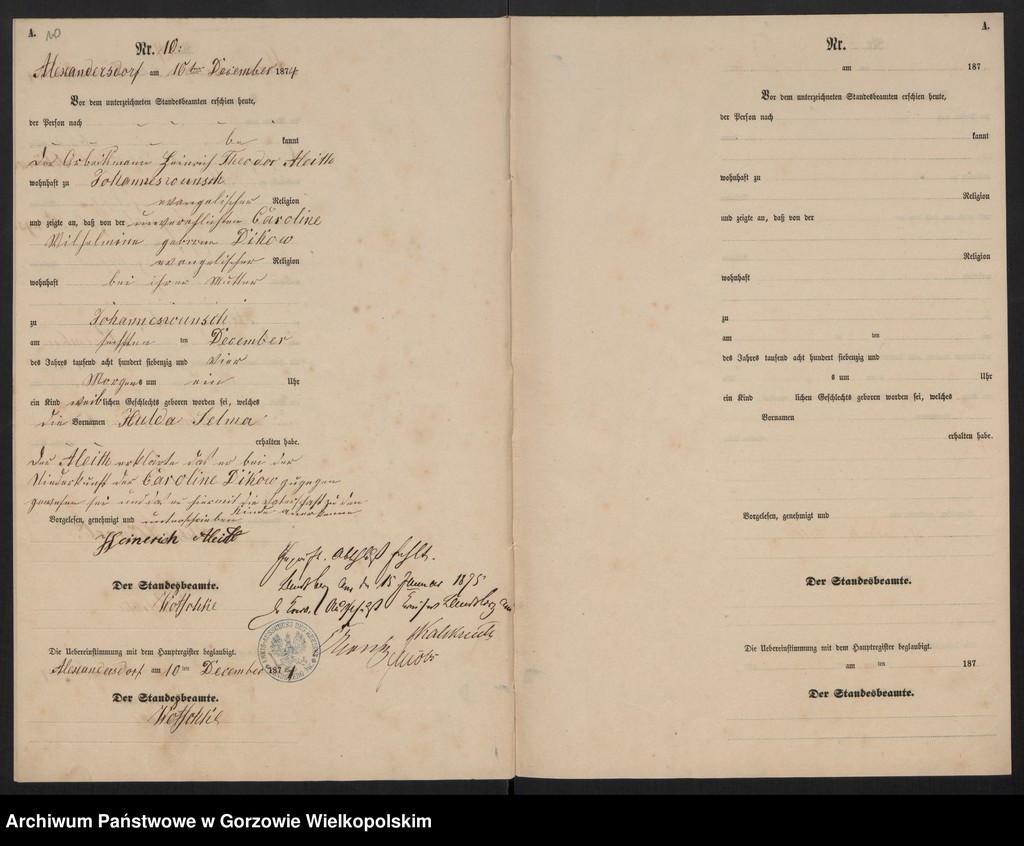 A.
10
Nr. 10.
Alexandersdorf am 10ten December 1874
Vor dem unterzeichneten Standesbeamten erschien heute,
der Person nach
be kannt
Der Arbeitsmann Heinrich Theodor Aleith
wohnhaft zu Johanneswunsch
evangelischer Religion
und zeigte an, daß von der unverehlichten Caroline
Wilhelmine geborne Dikow
evangelischer Religion
wohnhaft bei ihrer Mutter
zu Johanneswunsch
am sechsten ten December
des Jahres tausend acht hundert siebenzig und vier
Morgens um ein Uhr
ein Kind weiblichen Geschlechts geboren worden sei, welches
die Vornamen Hulda Selma
erhalten habe.
Der Aleith erklärte das er bei der
Niederkunft der Caroline Dikow zugegen
gewesen sei und das er hiermit die Vaterschaft zu den
Kinde anerkenne
Vorgelesen, genehmigt und unterschrieben
Heinerich Aleith
Der Standesbeamte.
Die Uebereinstimmung mit dem Hauptregister beglaubigt.
Alexandersdorf am 10 ten December 1874
Der Standesbeamte.
Geprüft. fehlt.
Landsberg den 15 Januar 1875
Kreises Landsberg
A.
Nr.
am 187
Vor dem unterzeichneten Standesbeamten erschien heute,
der Person nach
kannt
wohnhaft zu
Religion
und zeigte an, daß von der
Religion
wohnhaft
zu
am ten
des Jahres tausend acht hundert siebenzig und
s um Uhr
ein Kind lichen Geschlechts geboren worden sei, welches
Vornamen
erhalten habe.
Vorgelesen, genehmigt und
Der Standesbeamte.
Die Uebereinstimmung mit dem Hauptregister beglaubigt.
am ten 187
Der Standesbeamte.
Archiwum Państwowe w Gorzowie Wielkopolskim